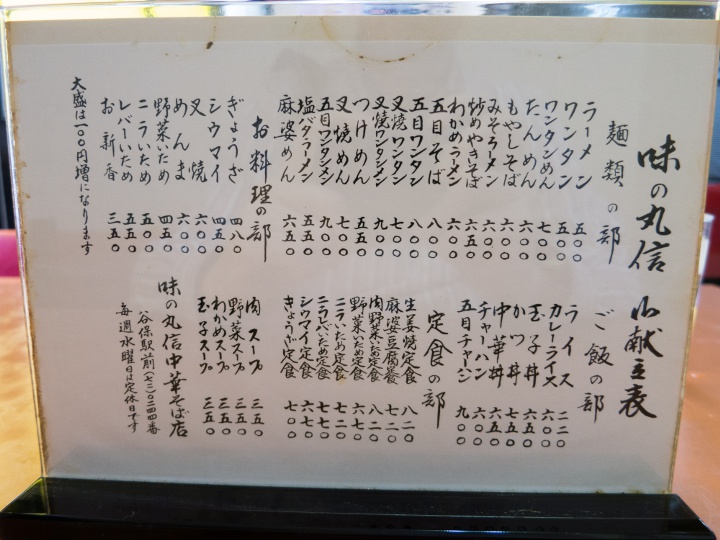 味の丸信 御献立表
麺類の部
ラーメン 五〇〇
ワンタン 五〇〇
ワンタンめん 七〇〇
たんめん 六〇〇
もやしそば 六〇〇
みそラーメン 六〇〇
炒めやきそば 六〇〇
わかめラーメン 六五〇
五目そば 八〇〇
五目ワンタン 八〇〇
叉焼ワンタン 七〇〇
叉焼ワンタンメン 九〇〇
つけめん 五五〇
叉焼めん 七〇〇
五目ワンタンメン 九〇〇
塩バターラーメン 五五〇
麻婆めん 六五〇
お料理の部
ぎょうざ 四八〇
シウマイ 四五〇
叉焼 六〇〇
めんま 六〇〇
野菜いため 四五〇
ニラいため 五五〇
レバーいため 五〇〇
お新香 三五〇
大盛は一〇〇円増になります
ご飯の部
ライス 二二〇
カレーライス 六〇〇
玉子丼 六五〇
かつ丼 七五〇
中華丼 六五〇
チャーハン 六〇〇
五目チャーハン 九〇〇
定食の部
生姜焼定食 八二〇
麻婆豆腐定食 七二〇
肉野菜いため定食 八二〇
野菜いため定食 六七〇
ニラいため定食 七二〇
ニラレバいため定食 六七〇
シウマイ定食 六七〇
ぎょうざ定食 七〇〇
肉スープ 三五〇
野菜スープ 三五〇
わかめスープ 三五〇
玉子スープ 三五〇
味の丸信中華そば店
谷保駅前(七二)〇二四四番
毎週水曜日は定休日です